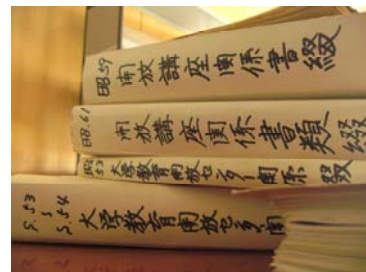 昭59 開放講座関係書綴
昭61 開放講座関係書類綴
昭53 大学教育開放センター関係綴
S.53
S.54
大学教育開放センター関